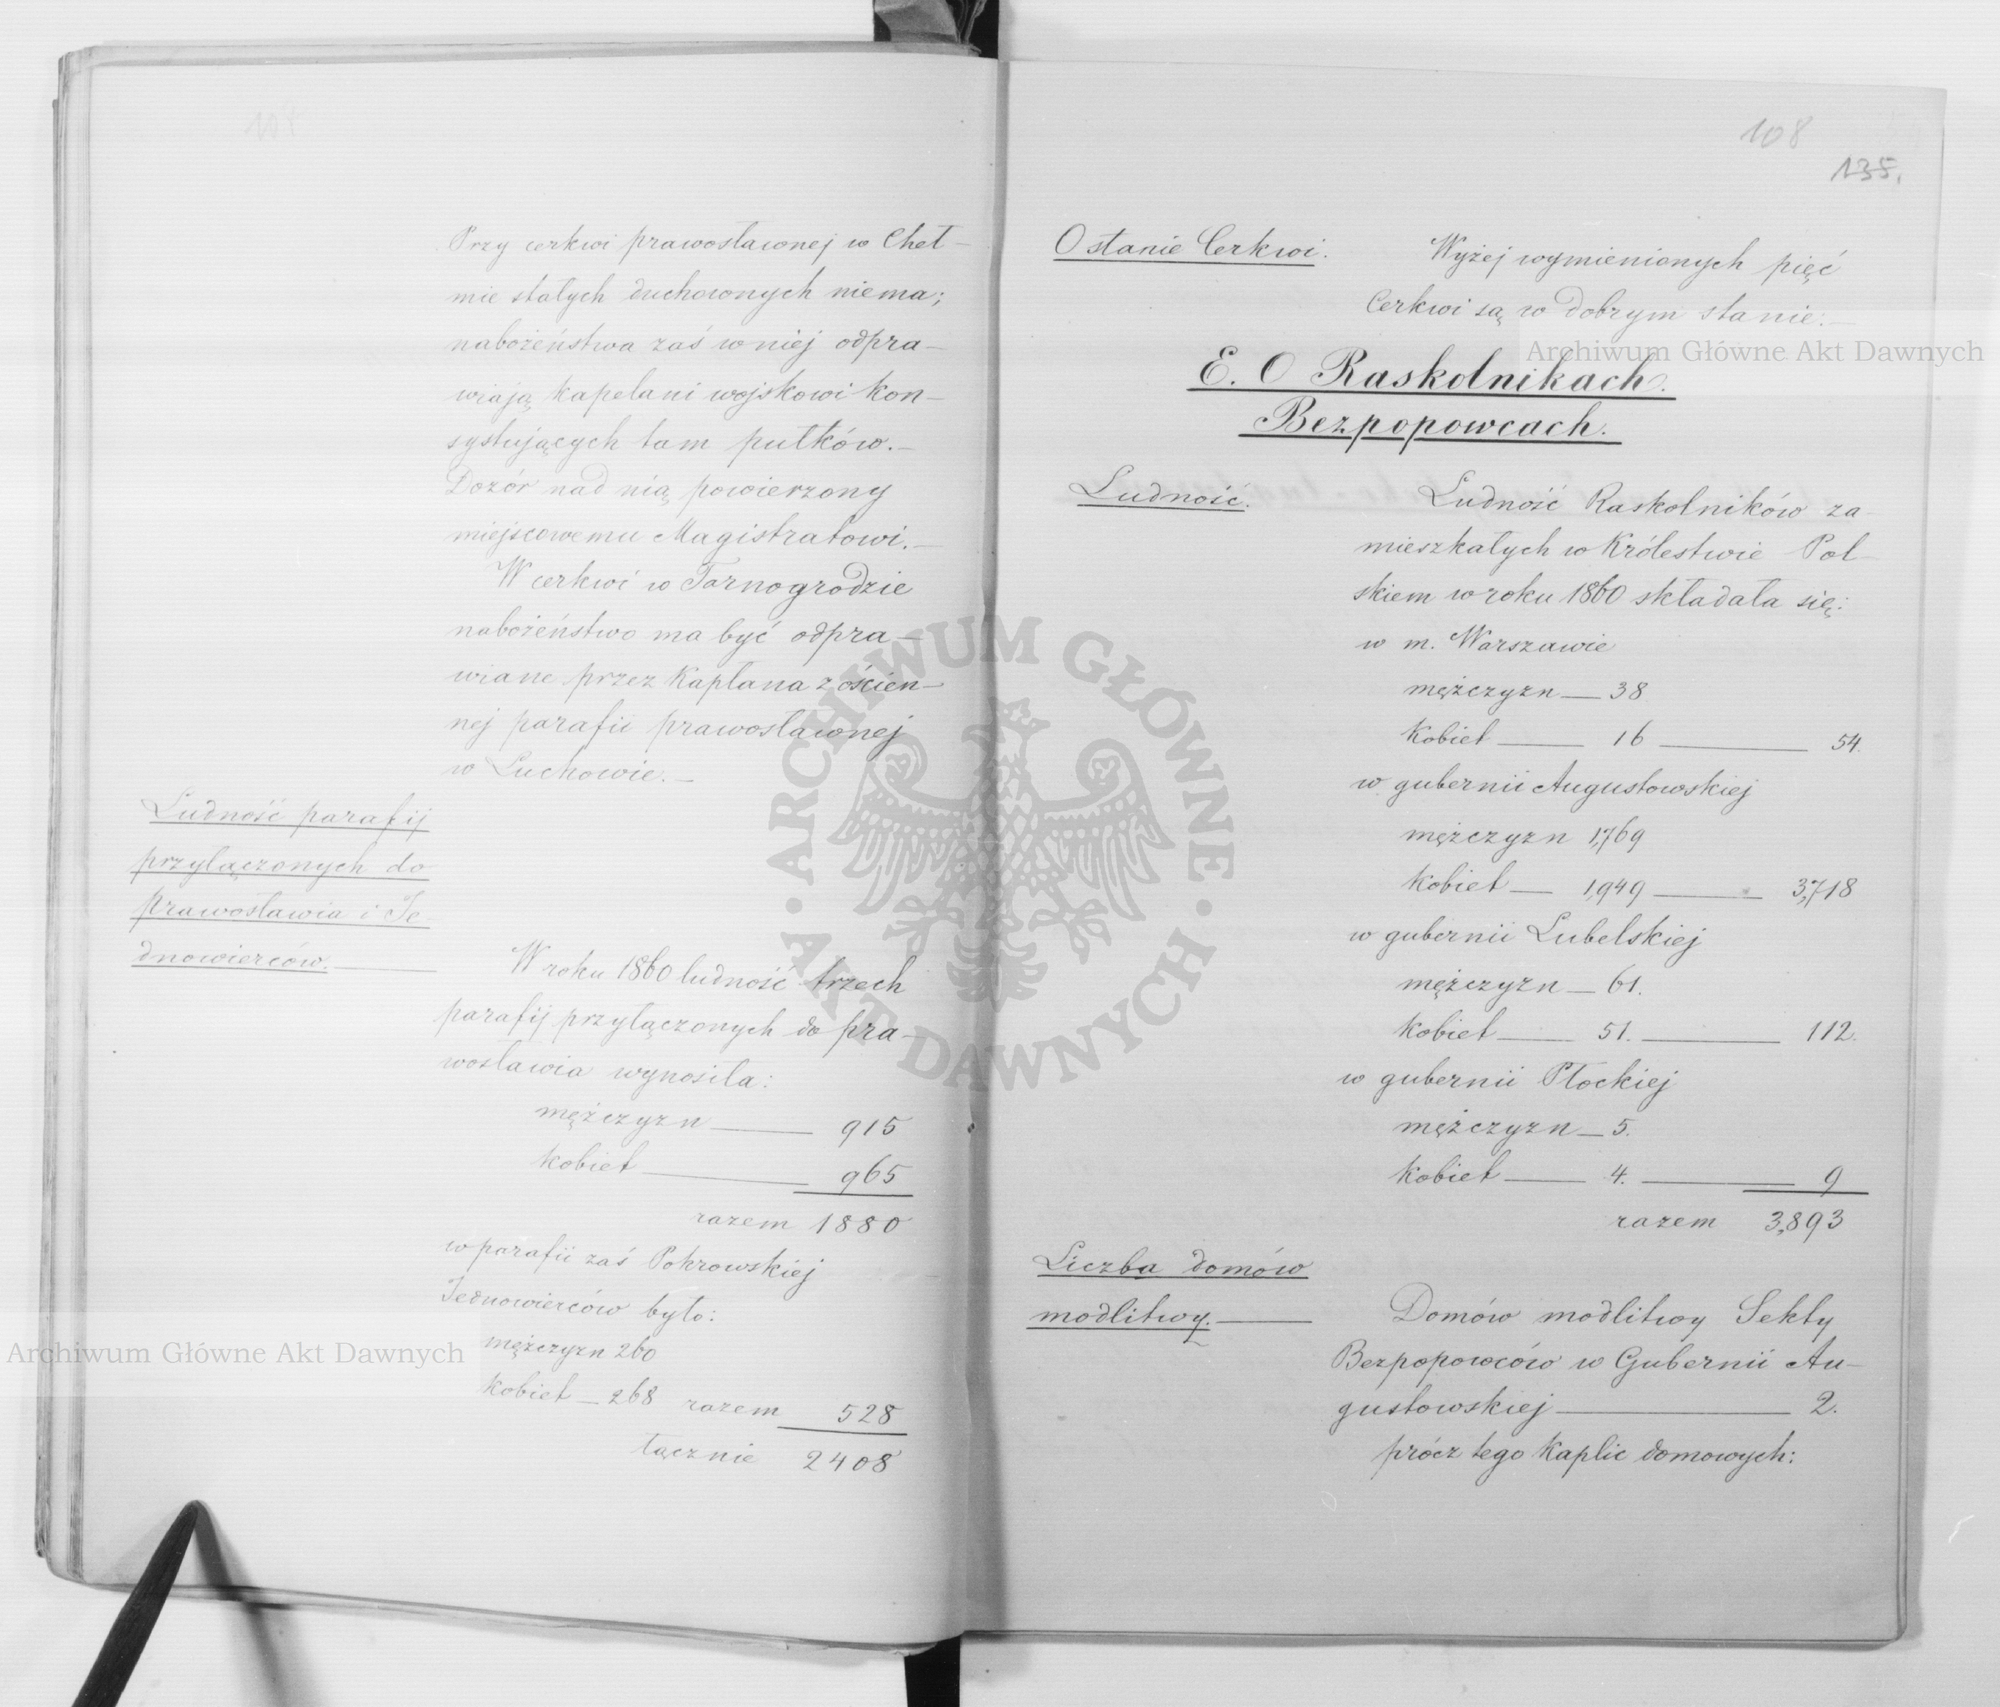 Przy cerkwi prawosławnej w Cheł-
mie stałych duchownych niema;
nabożeństwa zaś w niej odpra-
wiają Kapelani wojskowi kon-
systujących tam pułków.-
Dozór nad nią powierzony
miejscowemu Magistratowi.-
W cerkwi w Tarnogrodzie
nabożeństwo ma być odpra-
wiane przez Kapłana z ościen-
nej parafii prawosławnej
w Luchowie.-
Ludność parafij
przyłączonych do
prawosławia i Je-
dnowierców.
W roku 1860 ludność trzech
parafij przyłączonych do pra-
wosławia wynosiła:
mężczyzn 915
kobiet 965
razem 1880
w parafii zaś Pokrowskiej
Jednowierców było:
mężczyzn 260
kobiet - 268 razem 528
łącznie 2408
108
135.
O stanie Cerkwi.
Wyżej wymienionych pięć
Cerkwi są w dobrym stanie.-
E. O Raskolnikach
Bezpopowcach.
Ludność.
Ludność Raskolników za-
mieszkałych w Królestwie Pol-
skiem w roku 1860 składała się:
w m. Warszawie
mężczyzn - 38
Kobiet - 16 - 54.
w gubernii Augustowskiej
mężczyzn 1,769
Kobiet - 1,949 - 3,718
w gubernii Lubelskiej
mężczyzn - 61.
Kobiet - 51. - 112.
w gubernii Płockiej
mężczyzn - 5.
Kobiet - 4. - 9
razem 3,893
Liczba domów
modlitwy.
Domów modlitwy Sekty
Bezpopowców w Gubernii Au-
gustowskiej - 2.
prócz tego Kaplic domowych:
Archiwum Główne Akt Dawnych
Archiwum Główne Akt Dawnych
ARCHIWUM GŁÓWNE · AKT DAWNYCH ·